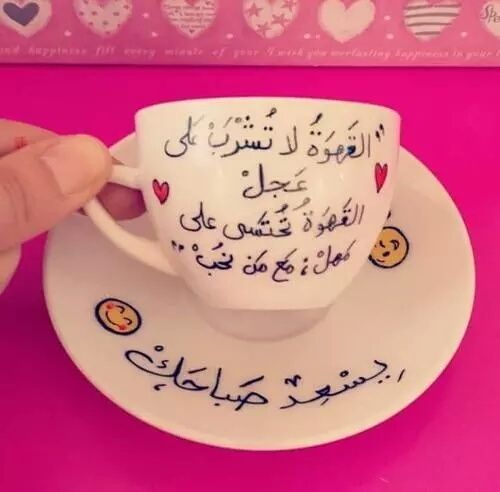 and happiness fill every minute of your I wish you everlasting happiness in your
"القَهوَةُ لا تُشْرَبْ عَلى
عَجلْ
القهوَةُ تُحْتَسى على
مَهلْ ; مَع مَن نُحبْ"
يِسْعِدْ صَباحَكْ